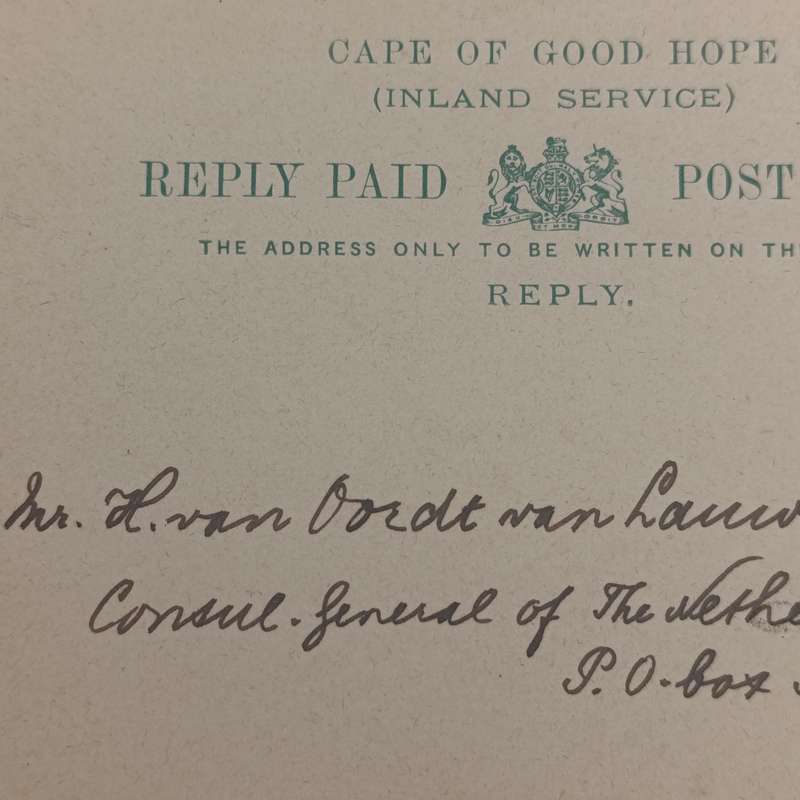 CAPE OF GOOD HOPE
(INLAND SERVICE)
REPLY PAID POST
THE ADDRESS ONLY TO BE WRITTEN ON TH
REPLY.
Mr. H. van Oordt van Lauw
Consul-General of The Nethe
P.O. box